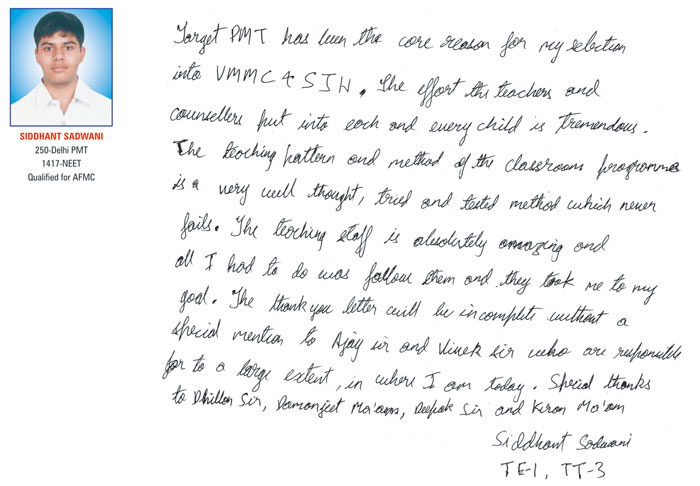 SIDDHANT SADWANI
250-Delhi PMT
1417-NEET
Qualified for AFMC
Target PMT has been the core reason for my selection
into VMMC & SJH. The effort the teachers and
counsellers put into each and every child is tremendous.
The teaching pattern and method of the classroom programme
is a very well thought, tried and tested method which never
fails. The teaching staff is absolutely amazing and
all I had to do was follow them and they took me to my
goal. The thankyou letter will be incomplete without a
special mention to Ajay sir and Vivek sir who are responsible
for to a large extent, in where I am today. Special thanks
to Dhillon Sir, Damanjeet Ma'am, Deepak Sir and Kiran Ma'am
Siddhant Sadwani
TE-1, TT-3